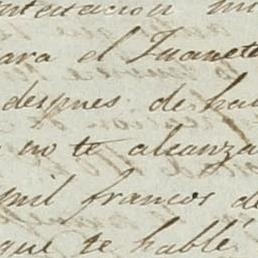 para el Juanete
despues de ha
no te alcanza
mil francos de
que te hablé